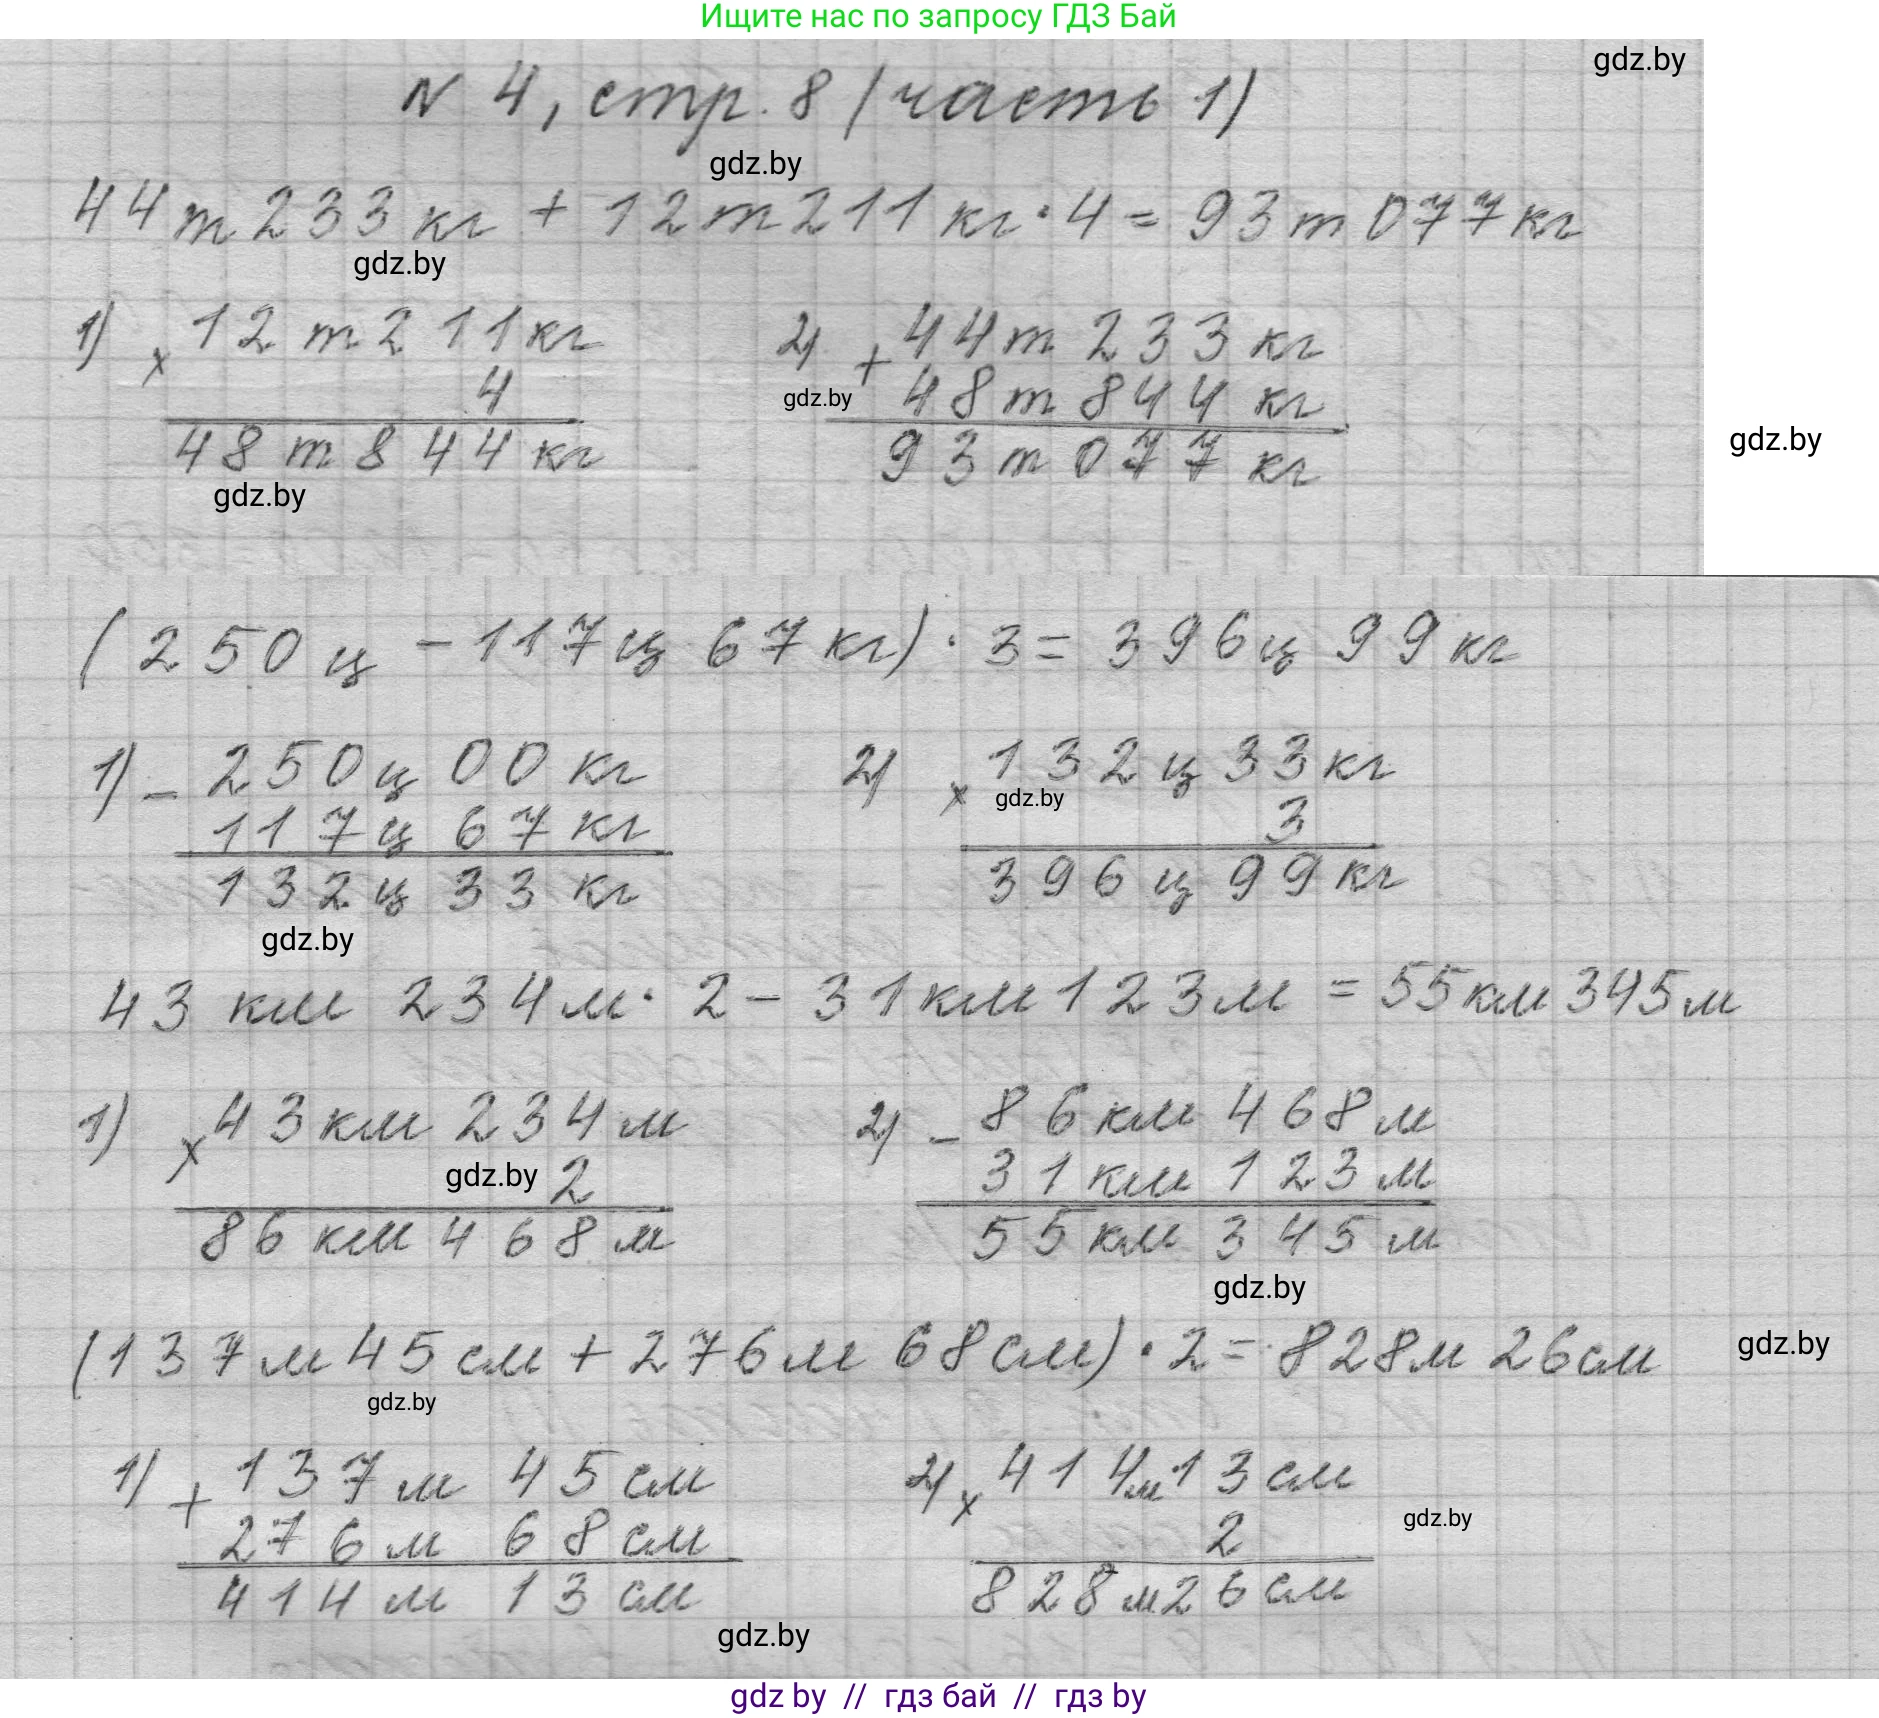 Ищите нас по запросу ГДЗ Бай
gdz.by
N 4, стр. 8 (часть 1)
gdz.by
44 т 233 кг + 12 т 211 кг · 4 = 93 т 077 кг
gdz.by
1) × 12 т 211 кг 2) + 44 т 233 кг
4 gdz.by 48 т 844 кг
48 т 844 кг 93 т 077 кг
gdz.by
gdz.by
(250 ц - 117 ц 67 кг) · 3 = 396 ц 99 кг
1) - 250 ц 00 кг 2) × 132 ц 33 кг
gdz.by
117 ц 67 кг 3
132 ц 33 кг 396 ц 99 кг
gdz.by
43 км 234 м · 2 - 31 км 123 м = 55 км 345 м
1) × 43 км 234 м 2) - 86 км 468 м
gdz.by 2 31 км 123 м
86 км 468 м 55 км 345 м
gdz.by
(137 м 45 см + 276 м 68 см) · 2 = 828 м 26 см
gdz.by
gdz.by
1) + 137 м 45 см 2) × 414 м 13 см
276 м 68 см 2 gdz.by
414 м 13 см 828 м 26 см
gdz.by
gdz by // гдз бай // гдз by